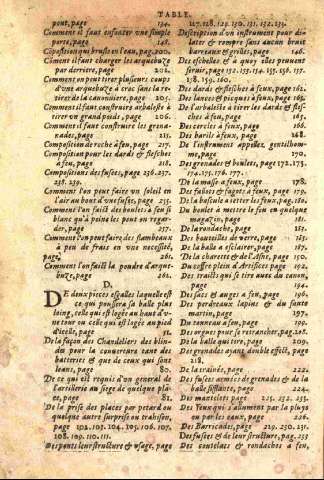 TABLE.
pont, page 194.
Comment il faut enfoncer une simple
porte, page 148.
Cõpositions qui bruslẽt en l'eau, pag. 200.
Cõment il faut charger les arquebuze
par derriere, page 206.
Comment on peut tirer plusieurs coups
d'une arquebuze à croc sans la re-
tirer de la canonniere, page 205.
Comment il faut construire artifice à
tirer un grand poids, page 206.
Comment il faut construire les grena-
des, page 215.
Composition de roche à feu, page 217.
Composition pour les dards & flesches
à feu, page 218.
Compositions des fusees, page 236. 237.
238. 239.
Comment l'on peut faire un soleil en
l'air au bout d'une fusee, page 235.
Comment l'on faict des boulets à feu si
blanc qu'à peine les peut on regar-
der, page 257.
Comment l'on peut faire des flambeaux
à peu de frais en une necessité,
page, 261.
Comment l'on faict la poudre d'arque-
buze, page 261.
D.
DE deux pieces esgalles laquelle est
ce qui poussera sa balle plus
loing, celle qui est logee au haut d'u-
ne tour ou celle qui est logee au pied
d'icelle, page 91.
De la façon des Chandeliers des blin-
des pour la couverture tant des
batteries & que de ceux qui sont
leans, page 80.
De ce qui est requis d'un general de
l'artillerie au siege de quelque pla-
ce, page 88.
De la prise des places par petard ou
quelque autre surprise ou trahison,
page 102. 103. 104. 105. 106. 107.
108. 109. 110. 111.
Des ponts leur structure & usage, page
127. 128. 129. 130. 131. 132. 133.
Description d'un instrument pour di-
later & rompre sans aucun bruit
barreaux & grilles, page 146.
Des eschelles & à quoy elles peuvent
servir, page 152. 153. 154. 155. 156. 157.
158. 159. 160.
Des dards & flesches à feux, page 162.
Des lances & picques à feux, page 163.
De l'arbaleste à tirer les dards & fles-
ches à feu, page 165.
Des cercles à feux, page 166.
Des barils à feux, page 168.
De l'instrument appellé, gentilhom-
me, page 170.
Des grenades & boulets, page 172. 173.
174. 175. 176. 177.
De la masse à feux, page 178.
Des fustes & fagots à feux, page 179.
De la bascule à ietter les feux, pag. 180.
Du boulet à mettre le feu en quelque
magazin, page 181.
De la rondache, page 185.
Des bouteilles de verre, page 185.
De la balle à esclairer, page 187.
De la charette & de l'Asne, page 190.
Du coffre plein d'Artifices page 192.
Des traicts qui se tire avec du canon
page 194.
Des sacs & auges à feu, page 196.
Des perdreaux lapins & du fonte
martin, page 197.
Du tonneau à feu, page 199.
Des orgues pour se retrancher, pag. 208.
De la balle qui tire page 209.
Des grenades ayant double effect, page
218.
De la traînée, page 222.
Des fusees armees de grenades & de la
balle sifflante, page 224.
Des mantelets page 225. 232. 233.
Des Feux qui s'allument par la pluye
ou par les eaux, page 226.
Des Barricades, page 229. 230. 231.
Des fusees & de leur structure, pag. 233
Des coutelas & rondaches à feu,